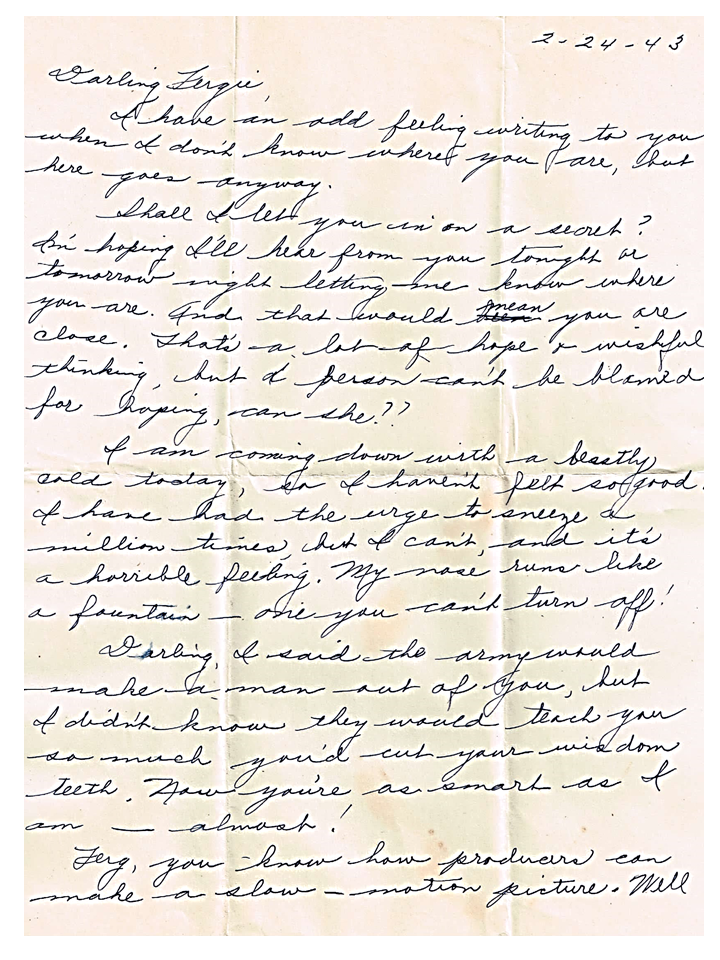 2-24-43
Darling Fergie,
I have an odd feeling writing to you
when I don't know where you are, but
here goes anyway.
Shall I let you in on a secret?
I'm hoping I'll hear from you tonight or
tomorrow night letting me know where
you are. And that would mean you are
close. That's a lot of hope & wishful
thinking, but a person can't be blamed
for hoping, can she??
I am coming down with a beastly
cold today, so I haven't felt so good.
I have had the urge to sneeze a
million times, but I can't, and it's
a horrible feeling. My nose runs like
a fountain — one you can't turn off!
Darling, I said the army would
make a man out of you, but
I didn't know they would teach you
so much you'd cut your wisdom
teeth. Now you're as smart as I
am — almost!
Ferg, you know how producers can
make a slow-motion picture. Well